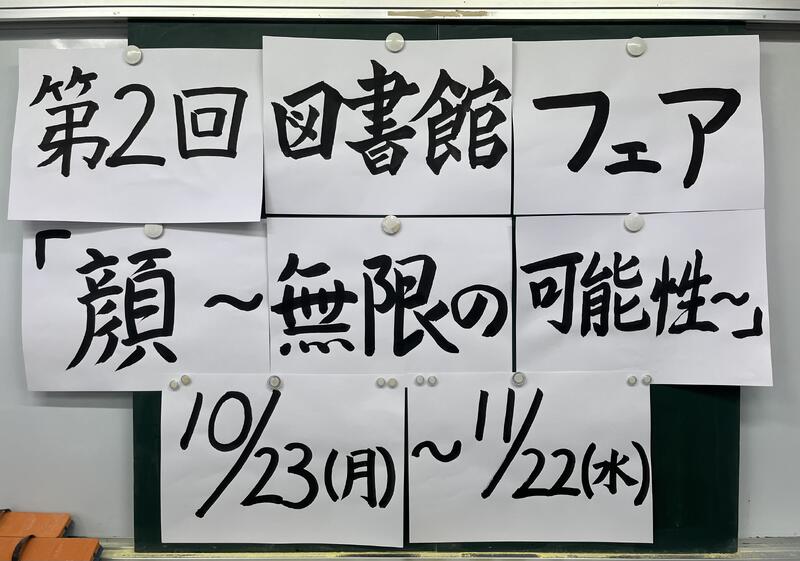 第2回 図書館 フェア
「顔 ～無限の 可能性～」
10/23(月) ～ 11/22(水)